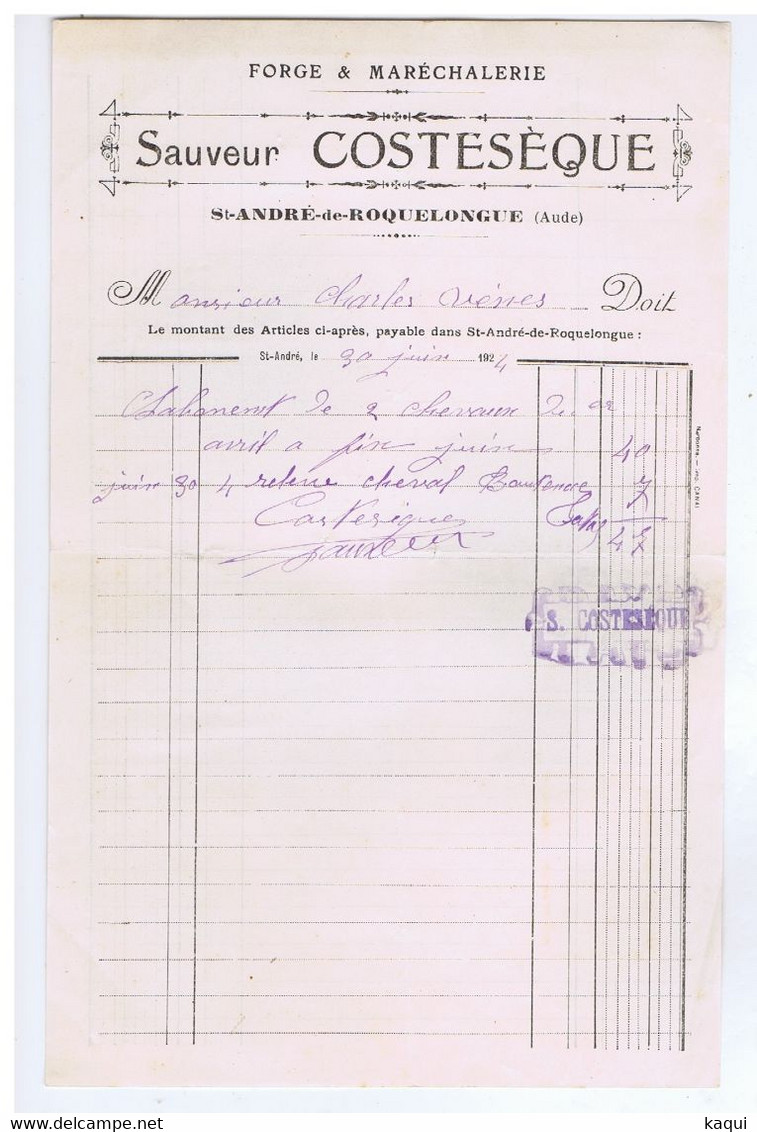 FORGE & MARÉCHALERIE
Sauveur COSTESÈQUE
St-ANDRÉ-de-ROQUELONGUE (Aude)
Monsieur Charles Vénes Doit
Le montant des Articles ci-après, payable dans St-André-de-Roquelongue :
St-André, le 30 juin 1924
2 chevaux de
avril a fin juin 40
juin 30 4 releve cheval 7
Costesèque Total 47
Sauveur
S. COSTESEQUE
Narbonne. — Imp. CANAL
kaqui